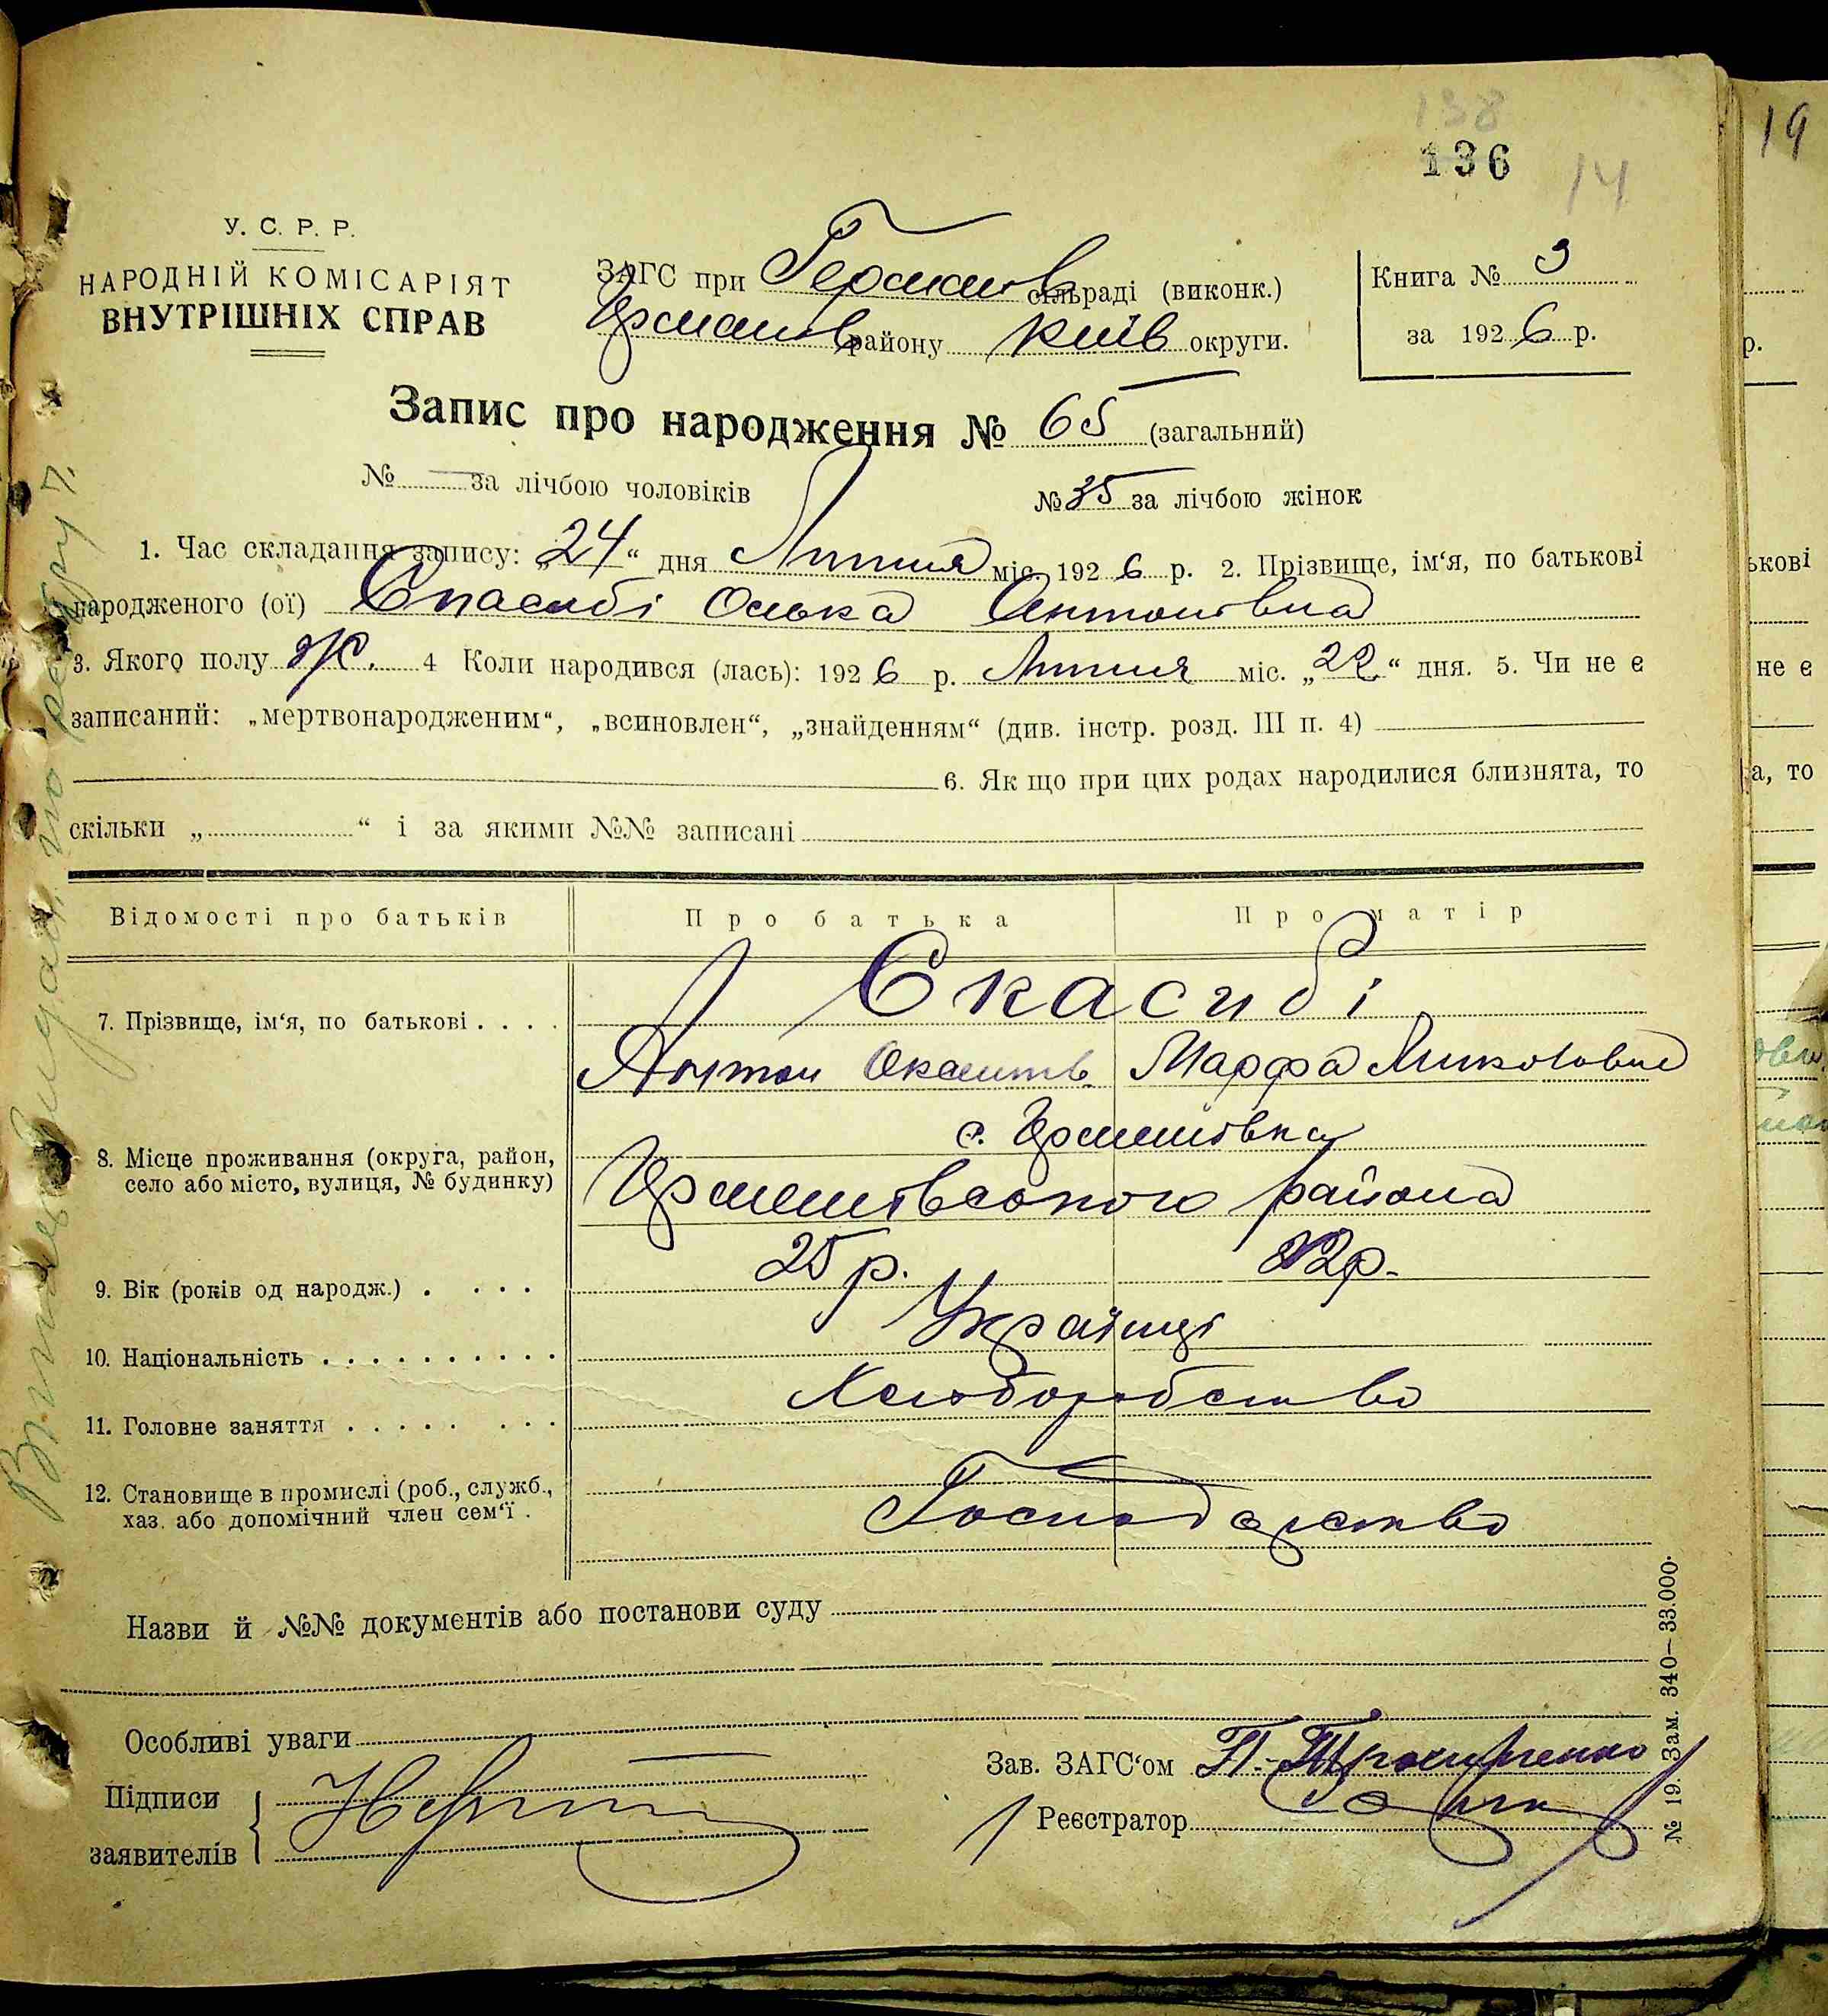 138
136
14
19
У. С. Р. Р.
НАРОДНІЙ КОМІСАРІЯТ
ВНУТРІШНІХ СПРАВ
ЗАГС при Германів сільраді (виконк.)
району Київ округи.
Книга № 3
за 1926 р.
Запис про народження № 65 (загальний)
№ — за лічбою чоловіків
№ 35 за лічбою жінок
1. Час складання запису: „24“ дня Липня міс. 1926 р. 2. Прізвище, ім‘я, по батькові
народженого (ої) Олька Антонівна
3. Якого полу ж. 4 Коли народився (лась): 1926 р. Липня міс. „22“ дня. 5. Чи не є
записаний: „мертвонародженим“, „всиновлен“, „знайденням“ (див. інстр. розд. III п. 4)
6. Як що при цих родах народилися близнята, то
скільки „ “ і за якими №№ записані
Відомості про батьків
Про батька
Про матір
7. Прізвище, ім‘я, по батькові . . . .
Скасибі
Антон Марфа
8. Місце проживання (округа, район,
село або місто, вулиця, № будинку)
с.
района
9. Вік (років од народж.) . . . .
25 р. 22 р.
10. Національність . . . . . . . . . .
Українці
11. Головне заняття . . . . . . . .
Хліборобство
12. Становище в промислі (роб., служб.,
хаз. або допомічний член сем‘ї .
Господарство
Назви й №№ документів або постанови суду
Особливі уваги
Підписи
заявителів
Зав. ЗАГС‘ом
Реєстратор
№ 19. Зам. 340—33.000.
ькові
не є
а, то
р.